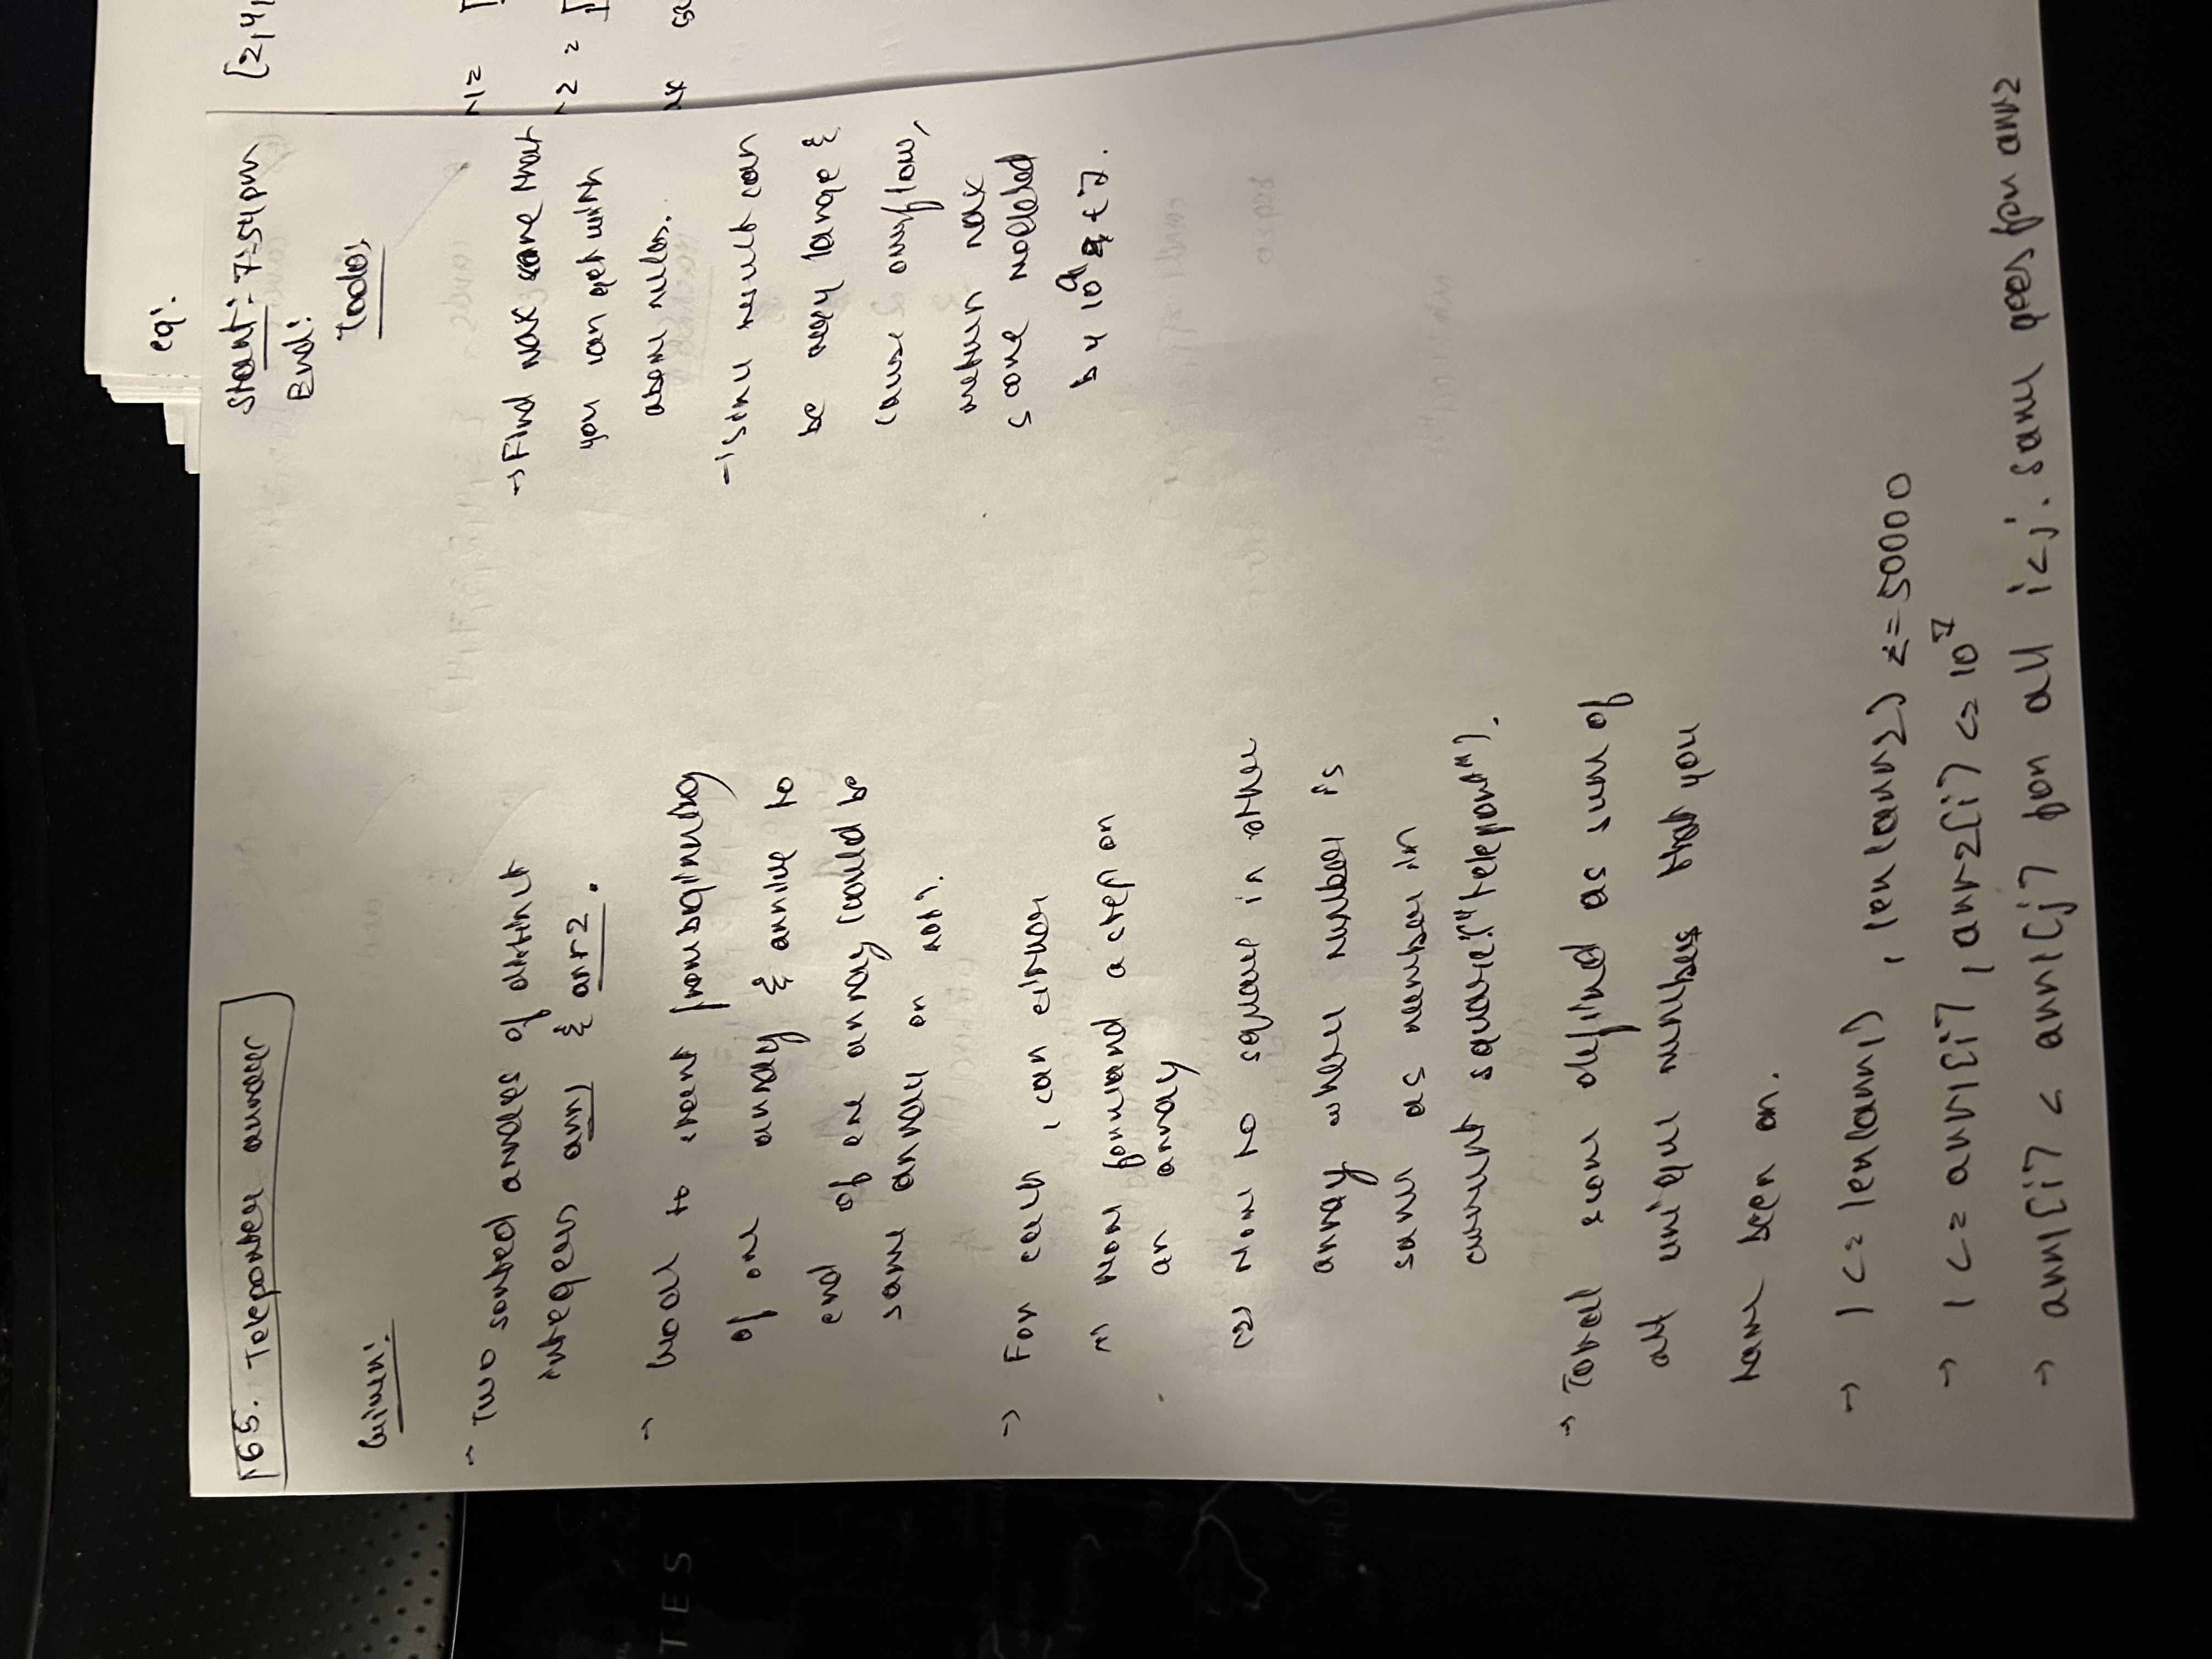 165. Teleporter arrays
Start: 7:54pm
End:
Todo:
Given:
→ Two sorted arrays of distinct
integers arr1 & arr2.
→ Goal to start from beginning
of one array & arrive to
end of one array (could be
same array or not).
→ For each, can either
(1) Move forward a step on
an array
(2) Move to square in other
array where number is
same as number in
current square. ("teleport").
→ Total score defined as sum of
all unique numbers that you
have been on.
→ 1 <= len(arr1), len(arr2) <= 50000
→ 1 <= arr1[i], arr2[i] <= 10^7
→ arr1[i] < arr1[j] for all i<j. same goes for arr2
→ Find max score that
you can get with
above rules.
→ Since result can
be very large &
cause overflow,
return max
score modded
by 10^9 + 7.
eg:
[2,4,
r1= [
r2 = [
TES
PERU